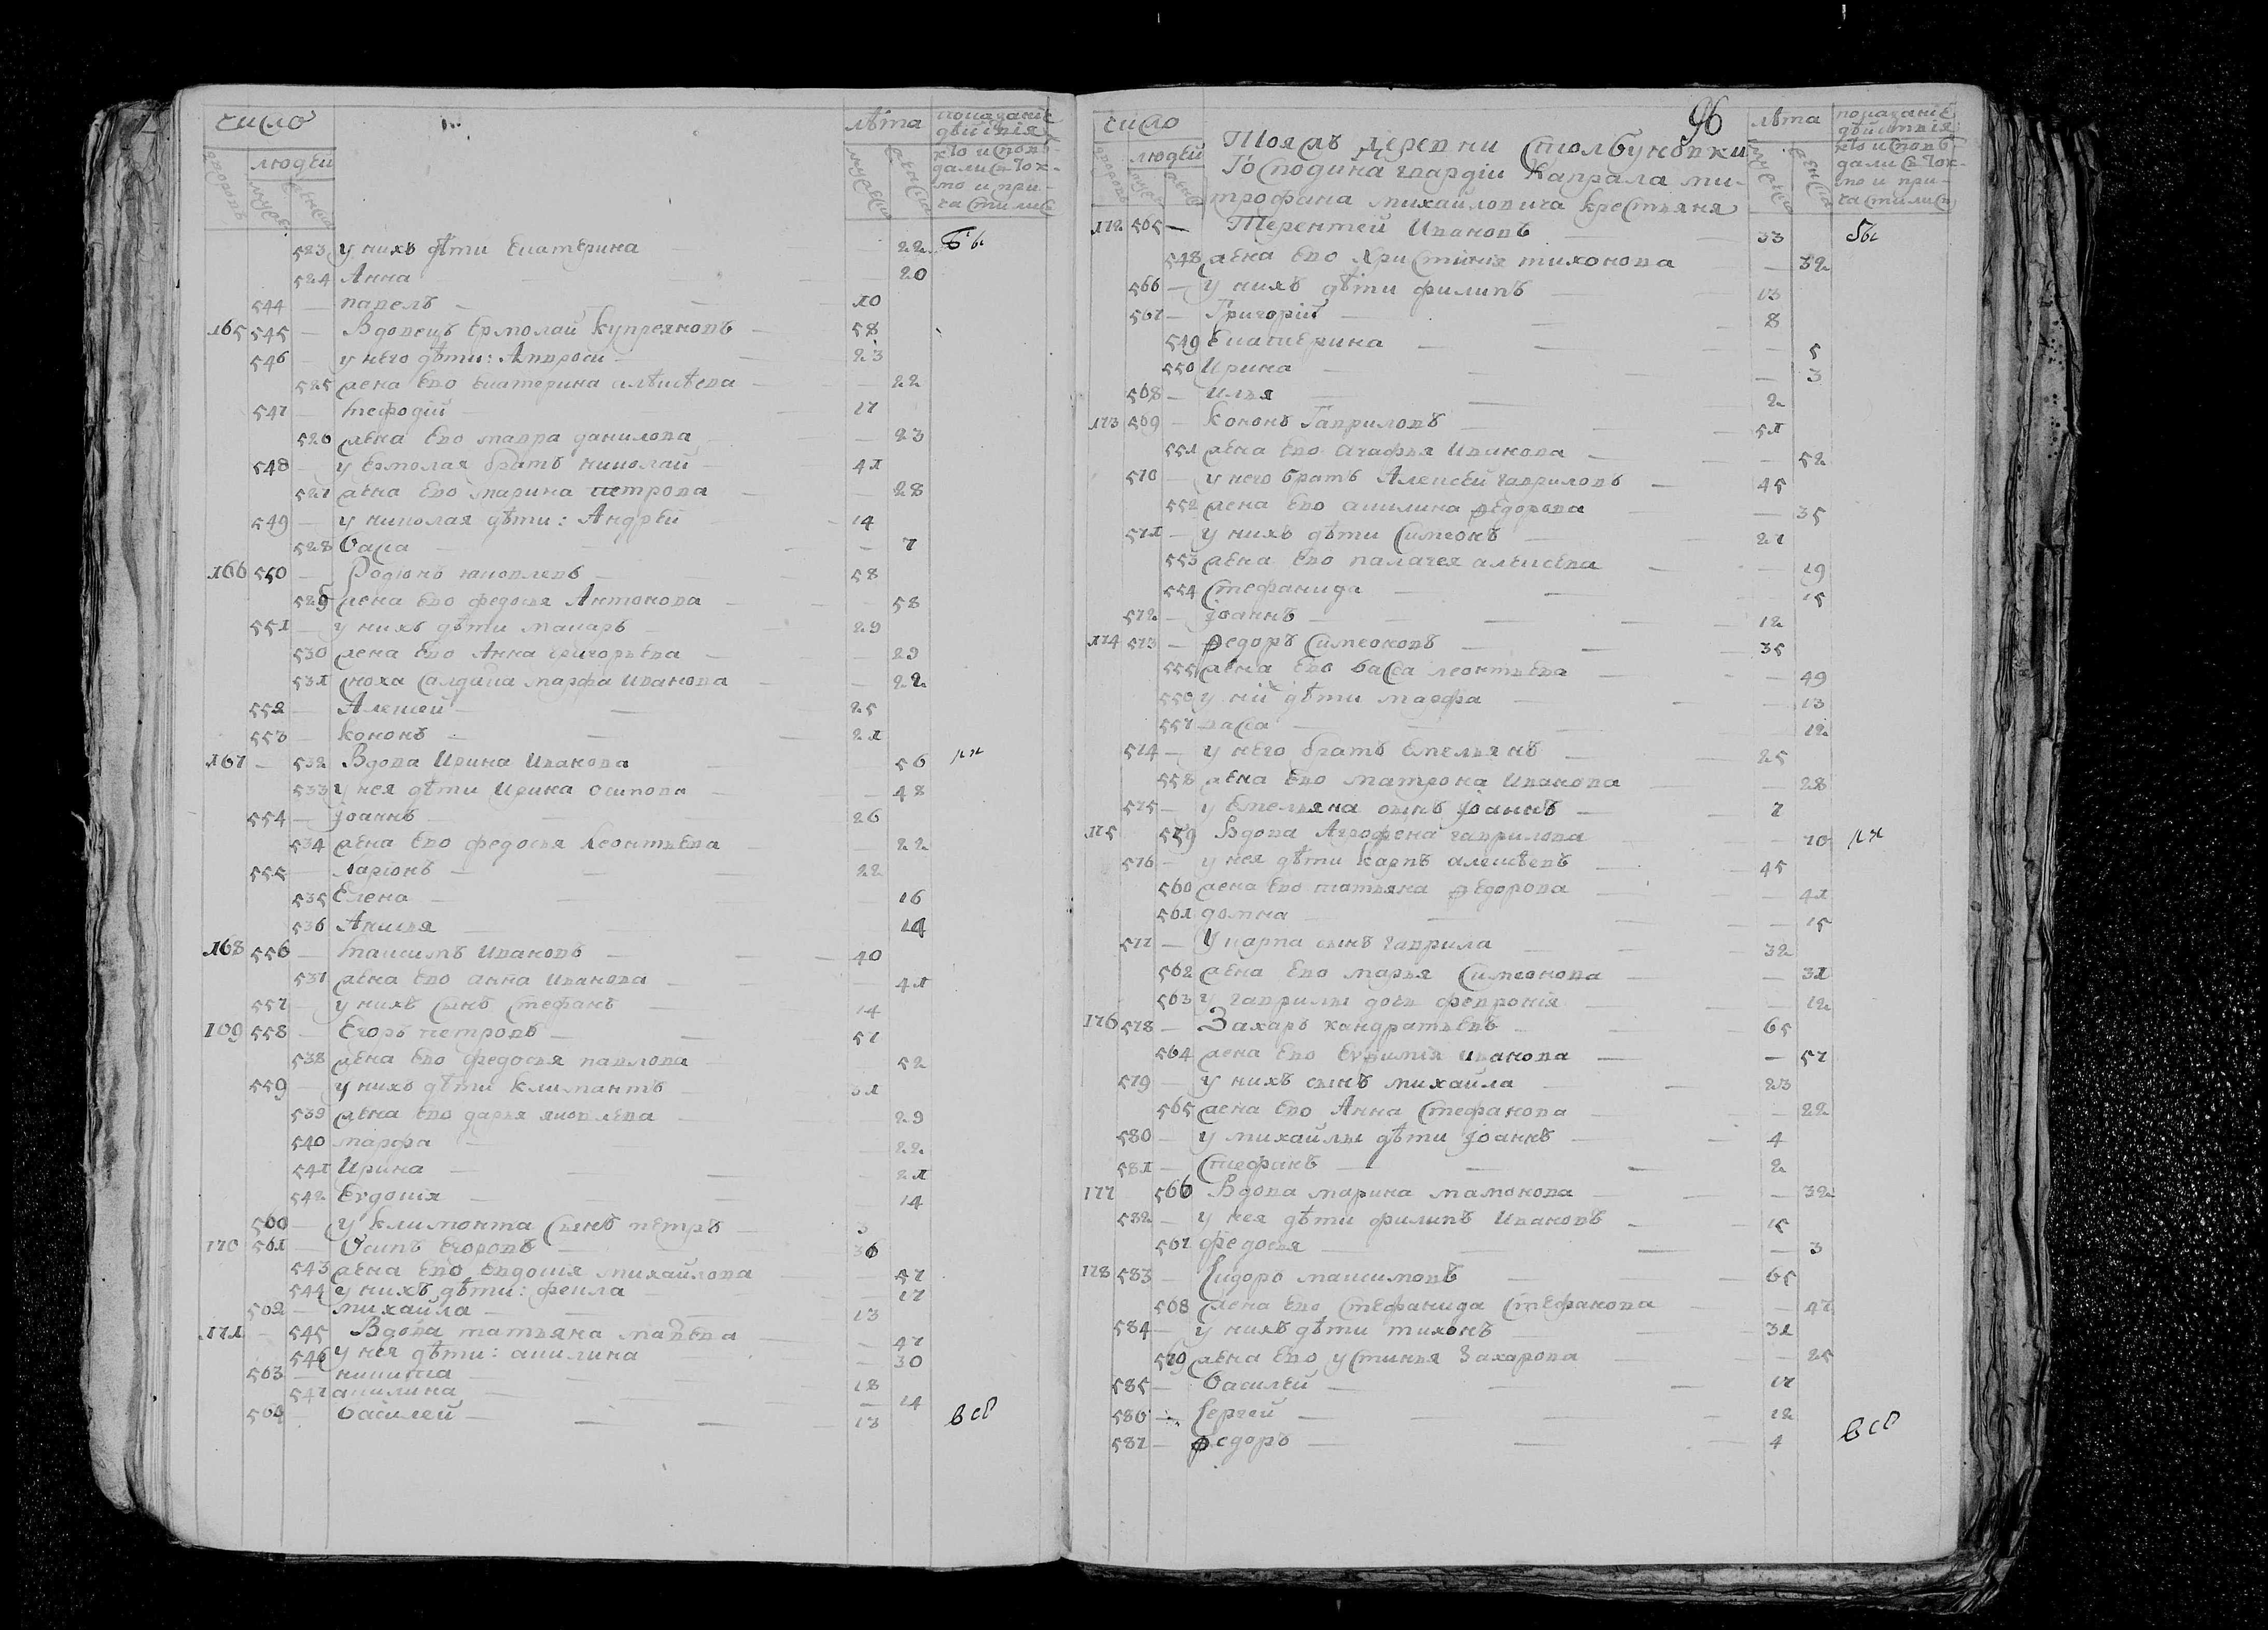 число
лѣта
показаніе дѣйствія
людей
кто исповѣ-
дались ток-
мо и при-
частились
дворовъ
мужеска
женска
мужеска
женска
523 у нихъ дѣти Екатерина — 22 бы
524 Анна — 20
544 — павелъ — 10
165 545 — Вдовецъ Ермолай Купреяновъ — 58
546 — у него дѣти: Амвроси — 23
525 жена ево Екатерина алѣѯѣева — 22
547 — мефодій — 17
526 жена ево мавра данилова — 23
548 — у Ермолая братъ николай — 41
527 жена ево марина петрова — 28
549 — у николая дѣти: Андрей — 14
528 васа — 7
166 550 — Родіонъ яковлевъ — 58
529 жена ево федосья Антонова — 58
551 — у нихъ дѣти макаръ — 29
530 жена ево Анна григорьева — 29
531 сноха салдица марфа иванова — 22
552 — Алексей — 25
553 — кононъ — 21
167 — 532 Вдова Ирина Иванова — 56
533 у нея дѣти Ирина осипова — 48
554 — іоаннъ — 26
534 жена ево федосья леонтьева — 22
555 — ларіонъ — 22
535 Елена — 16
536 Акилья — 14
168 556 — максимъ Ивановъ — 40
537 жена ево анна Иванова — 41
557 — у нихъ сынъ стефанъ — 14
169 558 — Егоръ петровъ — 57
538 жена ево федосья павлова — 52
559 — у нихъ дѣти климантъ — 31
539 жена ево дарья яковлева — 29
540 марфа — 22
541 Ирина — 21
542 Евдокія — 14
560 — у климонта сынъ петръ — 3
170 561 — Осипъ Егоровъ — 36
543 жена ево Евдокія михайлова — 57
544 у нихъ дѣти: фекла — 17
562 — михайла — 13
171 — 545 Вдова татьяна мавѣева — 47
546 у нея дѣти: акилина — 30
563 — никита — 18
547 акилина — 14
564 — василей — 13 всѣ
96
число
лѣта
показаніе
дѣйствія
людей
Тояжъ деревни Столбуновки
Господина гвардіи Капрала ми-
трофана михайловича крестьяня
кто исповѣ-
дались ток-
мо и при-
частились
дворовъ
мужеска
женска
мужеска
женска
172 565 — Терентей Ивановъ — 33 бы
548 жена ево христиния тихонова — 32
566 — у нихъ дѣти филипъ — 13
567 — Григорій — 8
549 Екатерина — 5
550 Ирина — 3
568 — илья — 2
173 569 — кононъ Гавриловъ — 51
551 жена ево агафья Иванова — 52
570 — у него братъ Алексей гавриловъ — 45
552 жена ево акилина федорова — 35
571 — у нихъ дѣти симеонъ — 27
553 жена ево палагея алексева — 19
554 стефанида — 15
572 — іоаннъ — 12
174 573 — федоръ симеоновъ — 35
555 жена ево васса леонтьева — 49
556 у ней дѣти марфа — 13
557 васса — 12
574 — у него братъ емельянъ — 25
558 жена ево матрона Иванова — 28
575 — у Емельяна сынъ іоаннъ — 7
175 559 Вдова Агрофена гаврилова — 70
576 — у нея дѣти карпъ алексѣевъ — 45
560 жена ево татьяна федорова — 41
561 домна — 15
577 — У карпа сынъ гаврила — 32
562 жена ево марья симеонова — 31
563 у гаврилы дочь февронія — 12
176 578 — Захаръ кандратьевъ — 65
564 жена ево Евѳимія иванова — 57
579 — у нихъ сынъ михайла — 23
565 жена ево Анна стефанова — 22
580 — у михайлы дѣти іоаннъ — 4
581 — стефанъ — 2
177 566 Вдова марина мамонова — 32
582 — у нея дѣти филипъ Ивановъ — 15
567 федосья — 3
178 583 — Сидоръ максимовъ — 65
568 жена ево стефанида стефанова — 47
584 — у нихъ дѣти тихонъ — 31
569 жена ево устинья Захарова — 25
585 — Василей — 17
586 — Сергей — 12
587 — федоръ — 4 всѣ